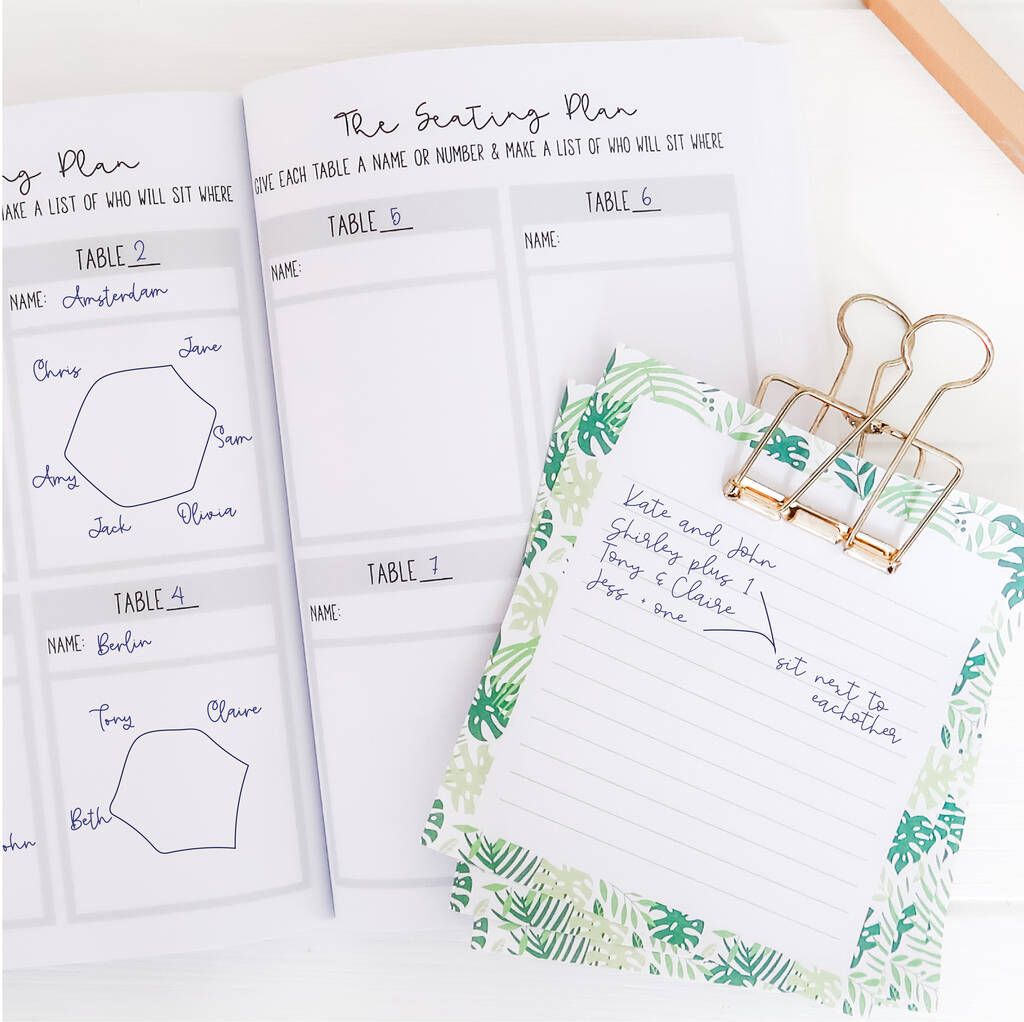 ng Plan
MAKE A LIST OF WHO WILL SIT WHERE
TABLE 2
NAME: Amsterdam
Chris
Jane
Sam
Amy
Jack
Olivia
TABLE 4
NAME: Berlin
Tony
Claire
Beth
ohn
The Seating Plan
GIVE EACH TABLE A NAME OR NUMBER & MAKE A LIST OF WHO WILL SIT WHERE
TABLE 5
NAME:
TABLE 6
NAME:
TABLE 7
NAME:
Kate and John
Shirley plus 1
Tony & Claire
Jess + one
sit next to
eachother